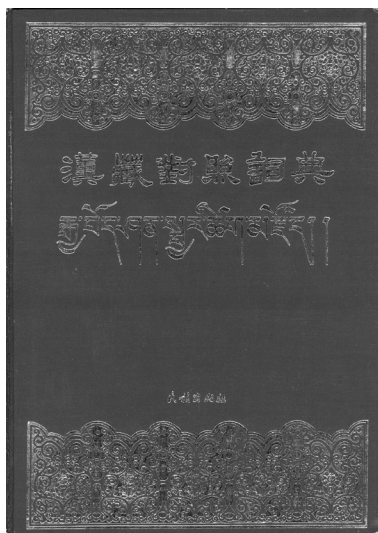 漢藏對照詞典
རྒྱ་བོད་ཤན་སྦྱར་ཚིག་མཛོད།།
民族出版社